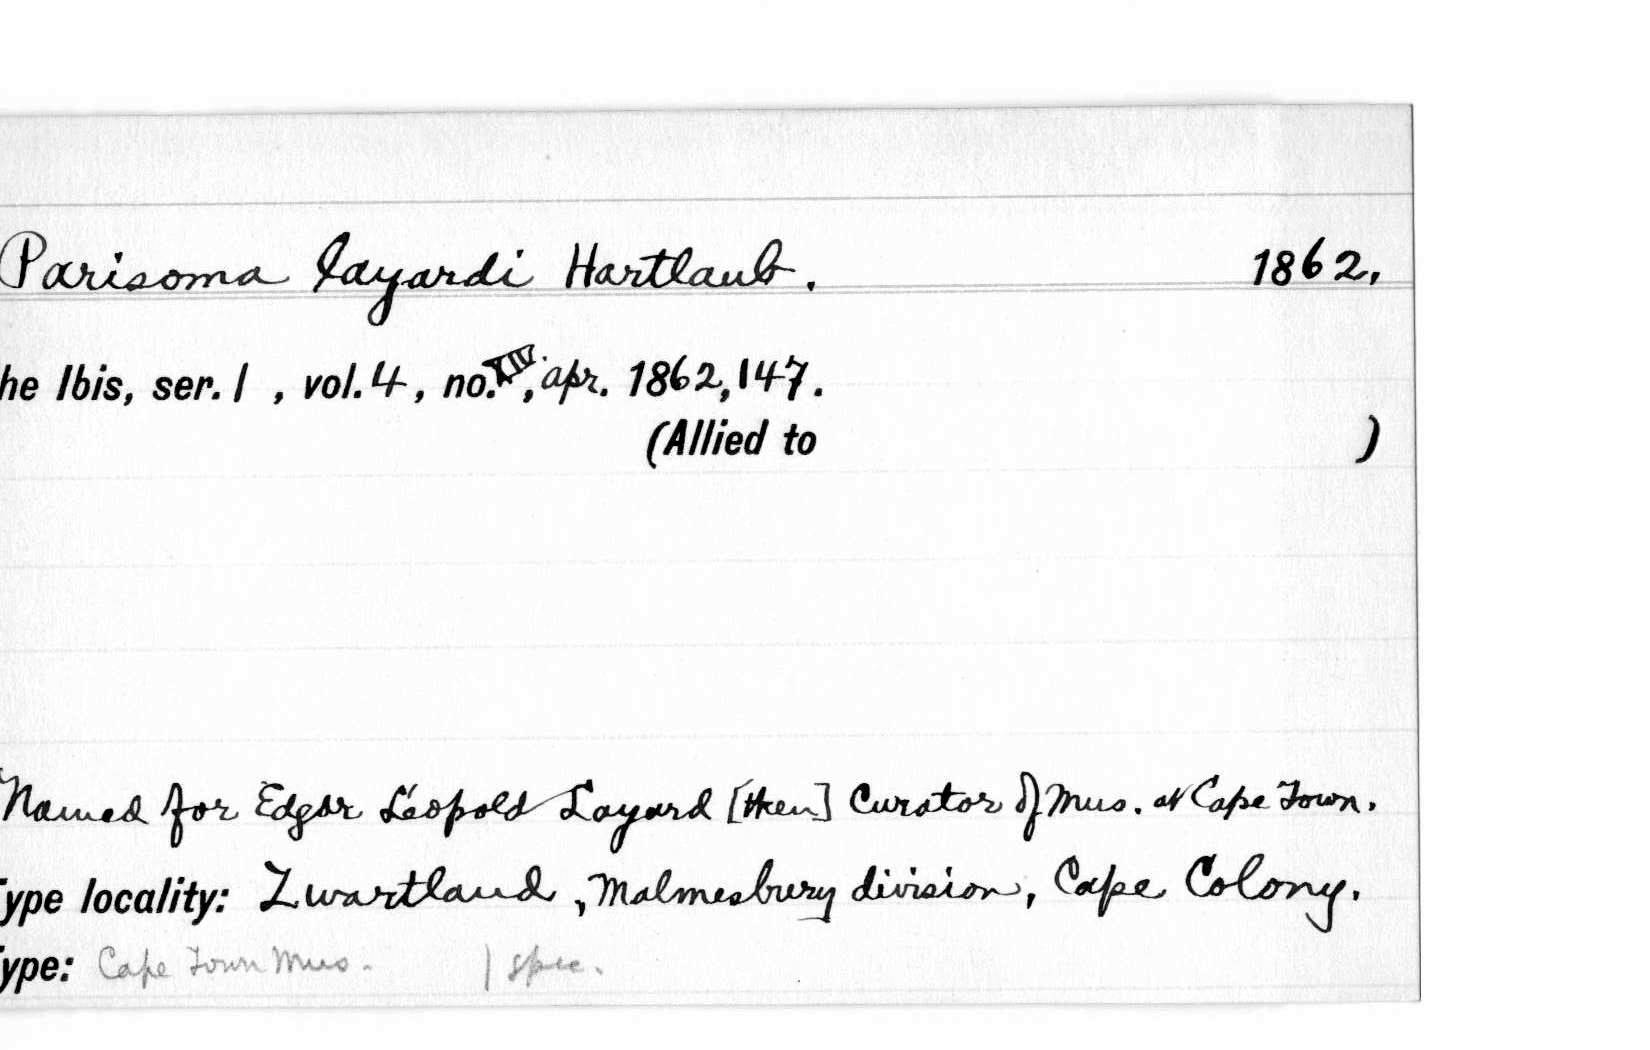 Parisoma layardi Hartlaub. 1862.
he Ibis, ser. 1 , vol. 4 , no. XIV. , apr. 1862, 147.
(Allied to )
Named for Edgar Léopold Layard [then] Curator of Mus. at Cape Town.
ype locality: Zwartland , Malmesbury division, Cape Colony.
ype: Cape Town Mus. 1 spec.